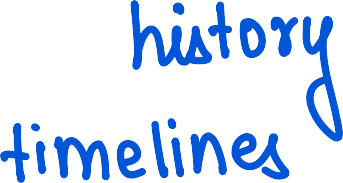 history
timelines